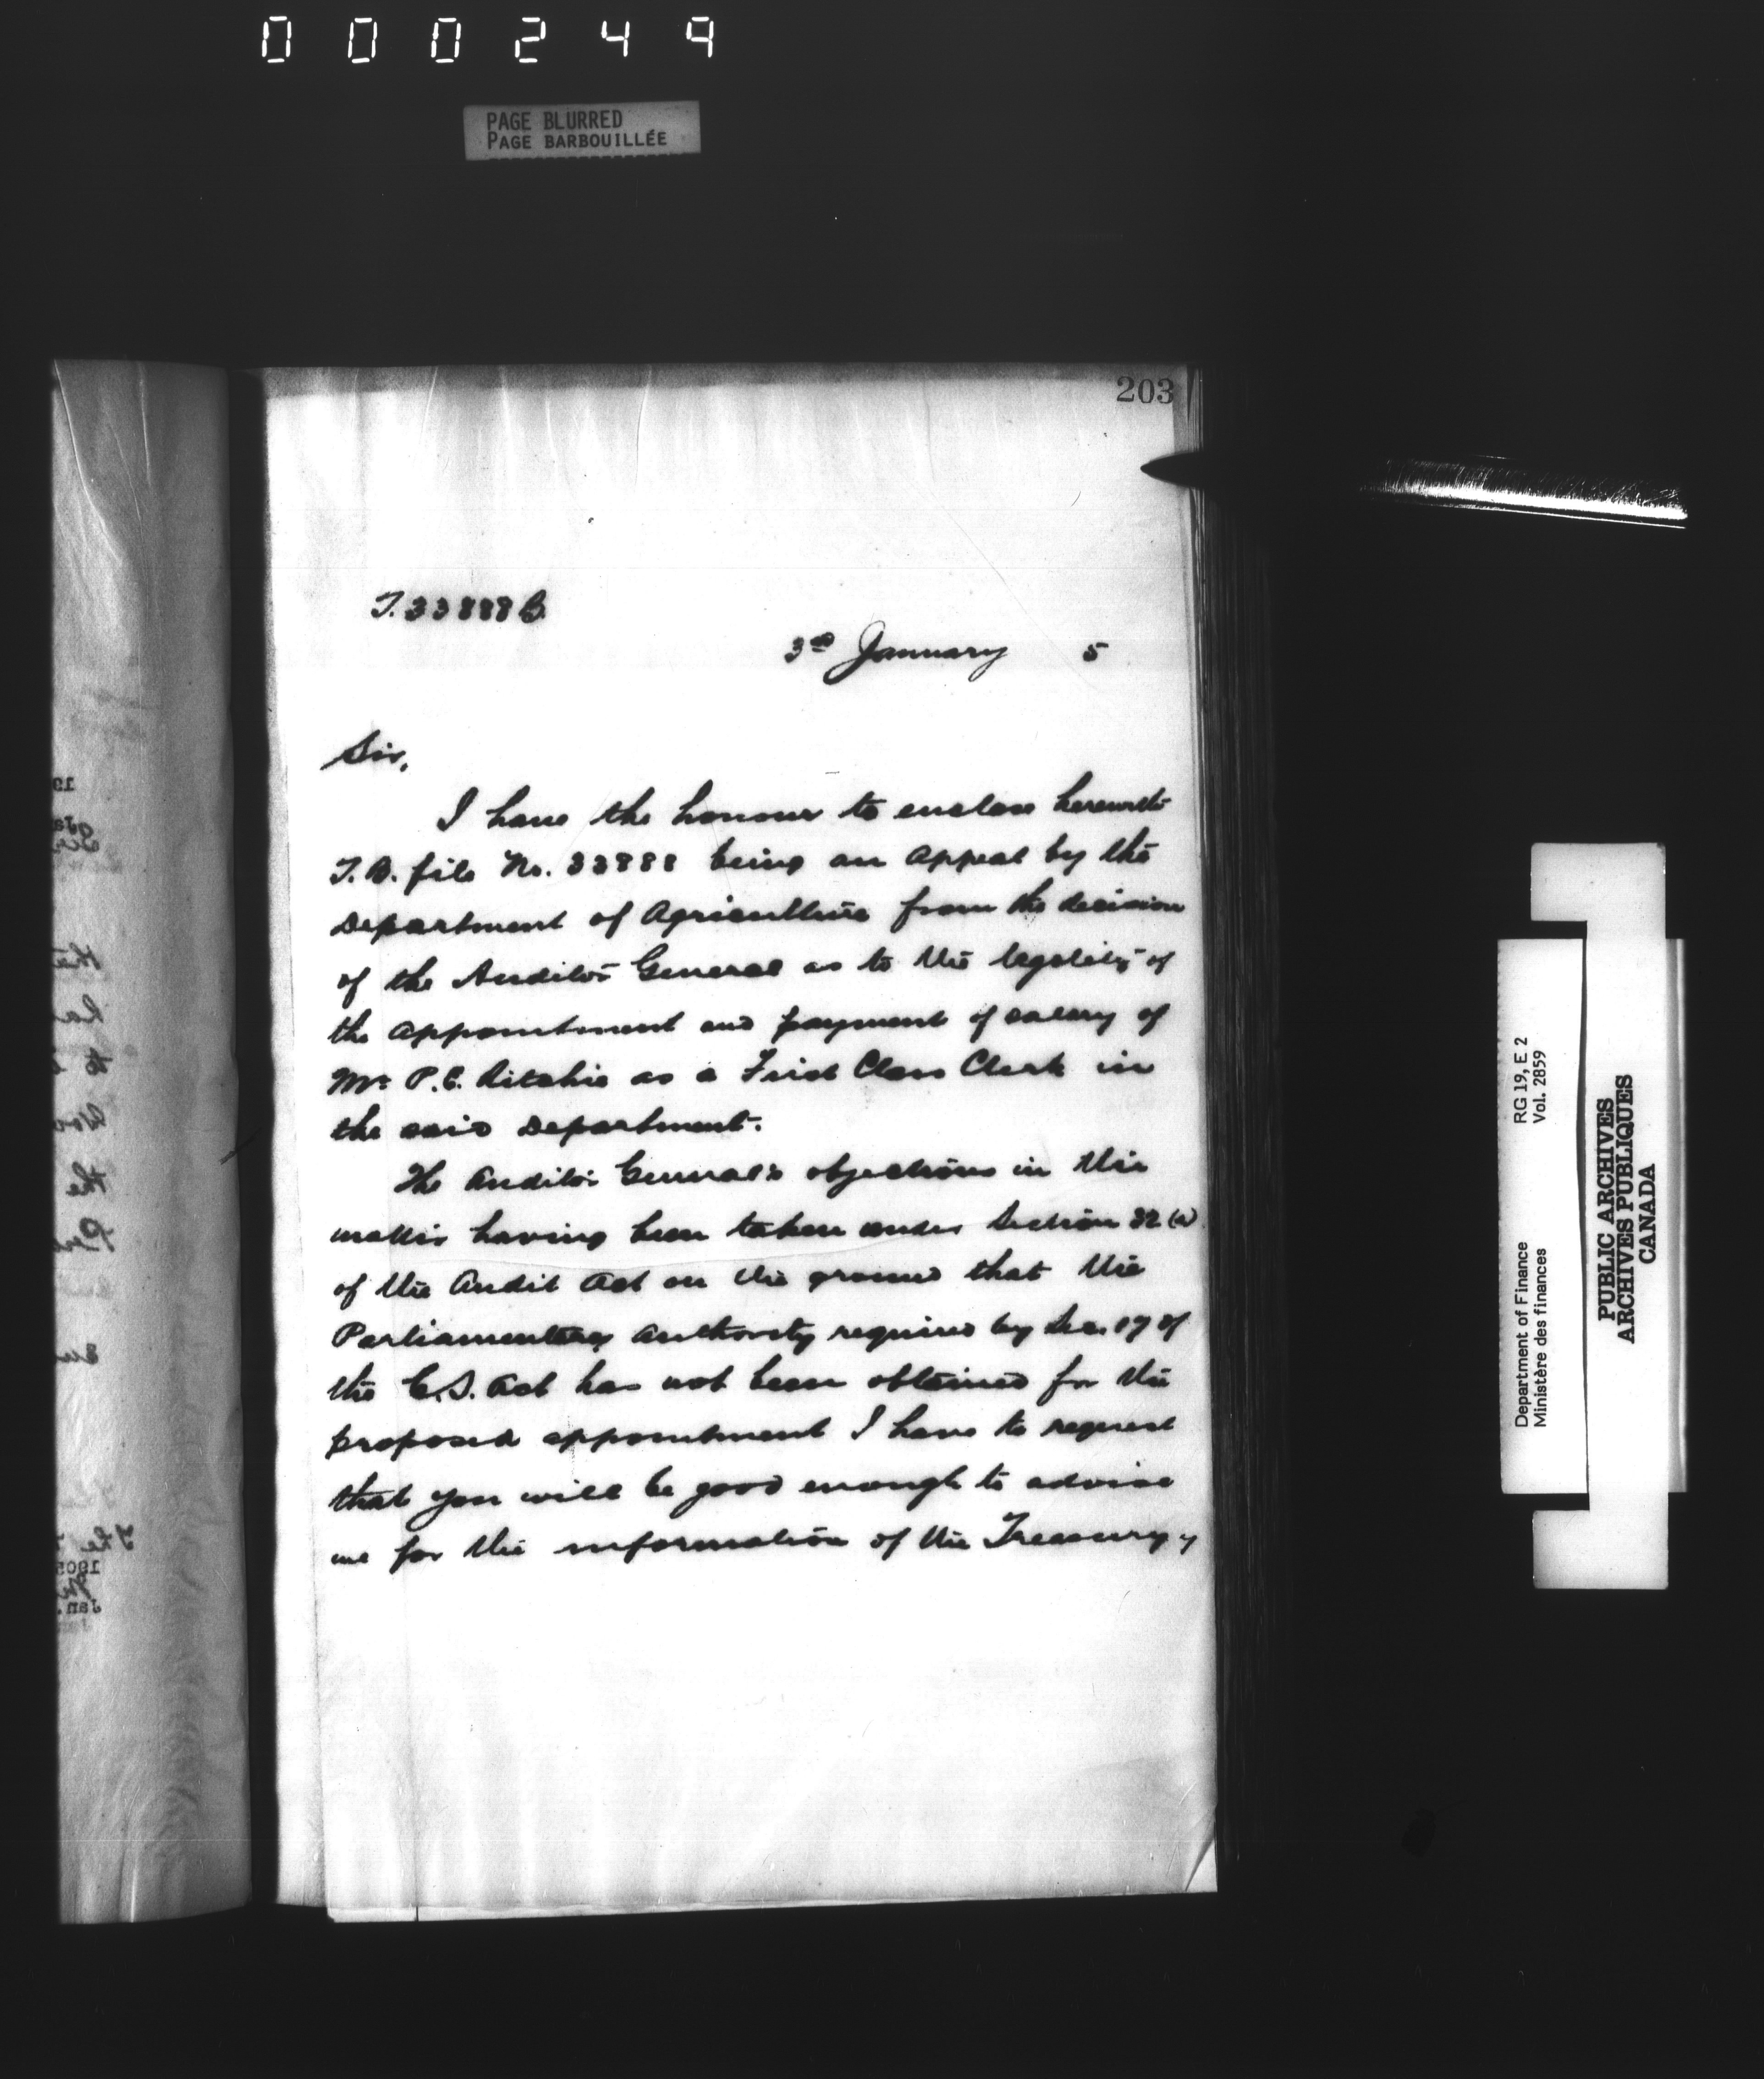 000249
PAGE BLURRED
PAGE BARBOUILLÉE
203
T. 33888 B.
3rd January 5
Sir,
I have the honour to enclose herewith
T.B. file No. 33888 being an appeal by the
Department of Agriculture from the decision
of the Auditor General as to the legality of
the appointment and payment of salary of
Mr P.E. Ritchie as a First Class Clerk in
the said Department.
The Auditor General's objections in this
matter having been taken under Section 32
of the Audit Act on the ground that the
Parliamentary authority required by Sec. 17 of
the C.S. Act has not been obtained for the
proposed appointment I have to request
that you will be good enough to advise
me for the information of the Treasury
1905
Jan.
RG 19, E 2
Vol. 2859
Department of Finance
Ministère des finances
PUBLIC ARCHIVES
ARCHIVES PUBLIQUES
CANADA